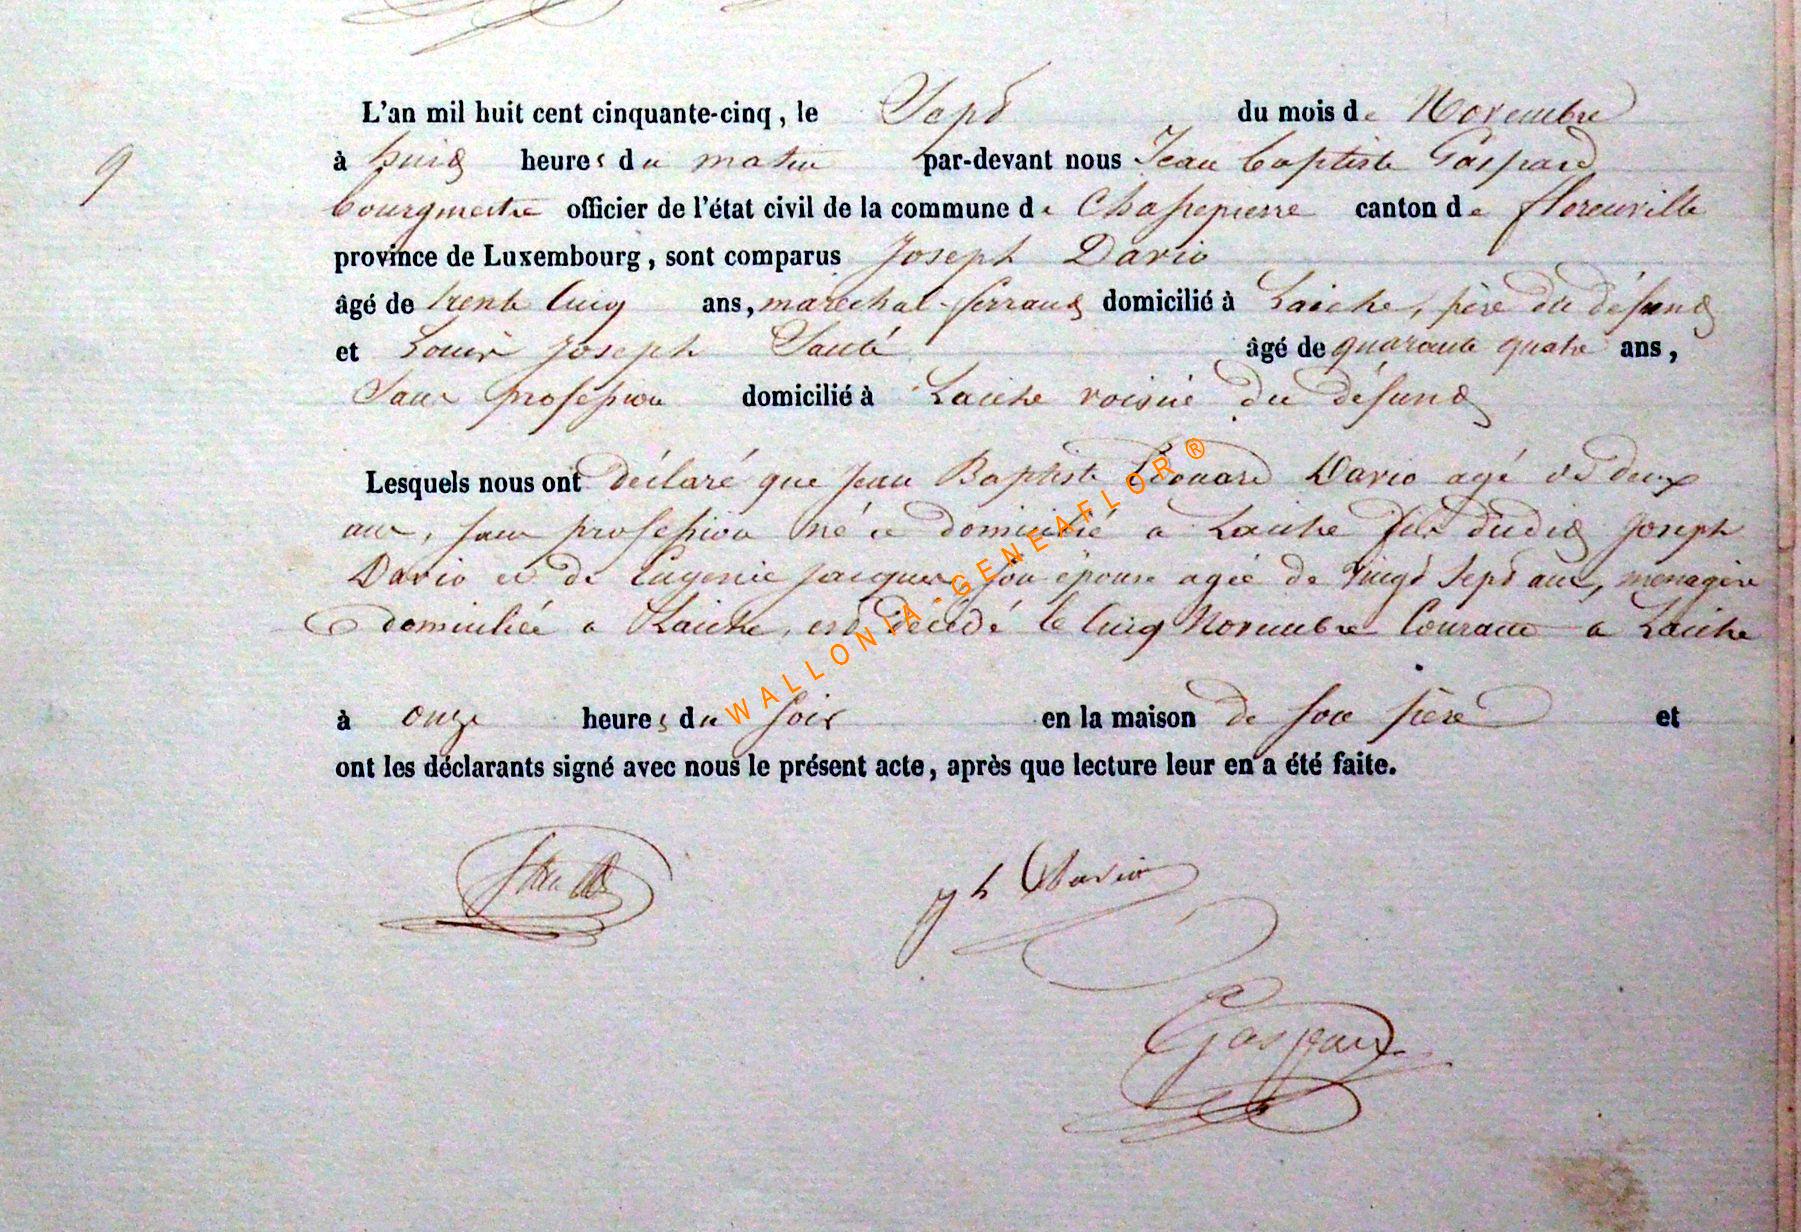 L'an mil huit cent cinquante-cinq, le Sept du mois de Novembre
9 à huit heures du matin par-devant nous Jean baptiste Gaspard
bourgmestre officier de l'état civil de la commune de Chassepierre canton de florenville
province de Luxembourg, sont comparus Joseph Davio
âgé de trente Cinq ans, marechal-ferrant domicilié à Laiche, père du défunt
et Louis Joseph âgé de quarante quatre ans,
Sans profession domicilié à Laiche voisin du défunt
Lesquels nous ont déclaré que Jean Baptiste Edouard Davio agé de deux
ans, sans profession né et domicilié a Laiche fils dudit Joseph
Davio et de Eugenie Jacques son épouse agée de Vingt Sept ans, menagère
domiciliée a Laiche, est décédé le Cinq Novembre Courant a Laiche
à onze heures du soir en la maison de son père et
ont les déclarants signé avec nous le présent acte, après que lecture leur en a été faite.
jh Davio
Gaspard
WALLONIA-GENEAFLOR®